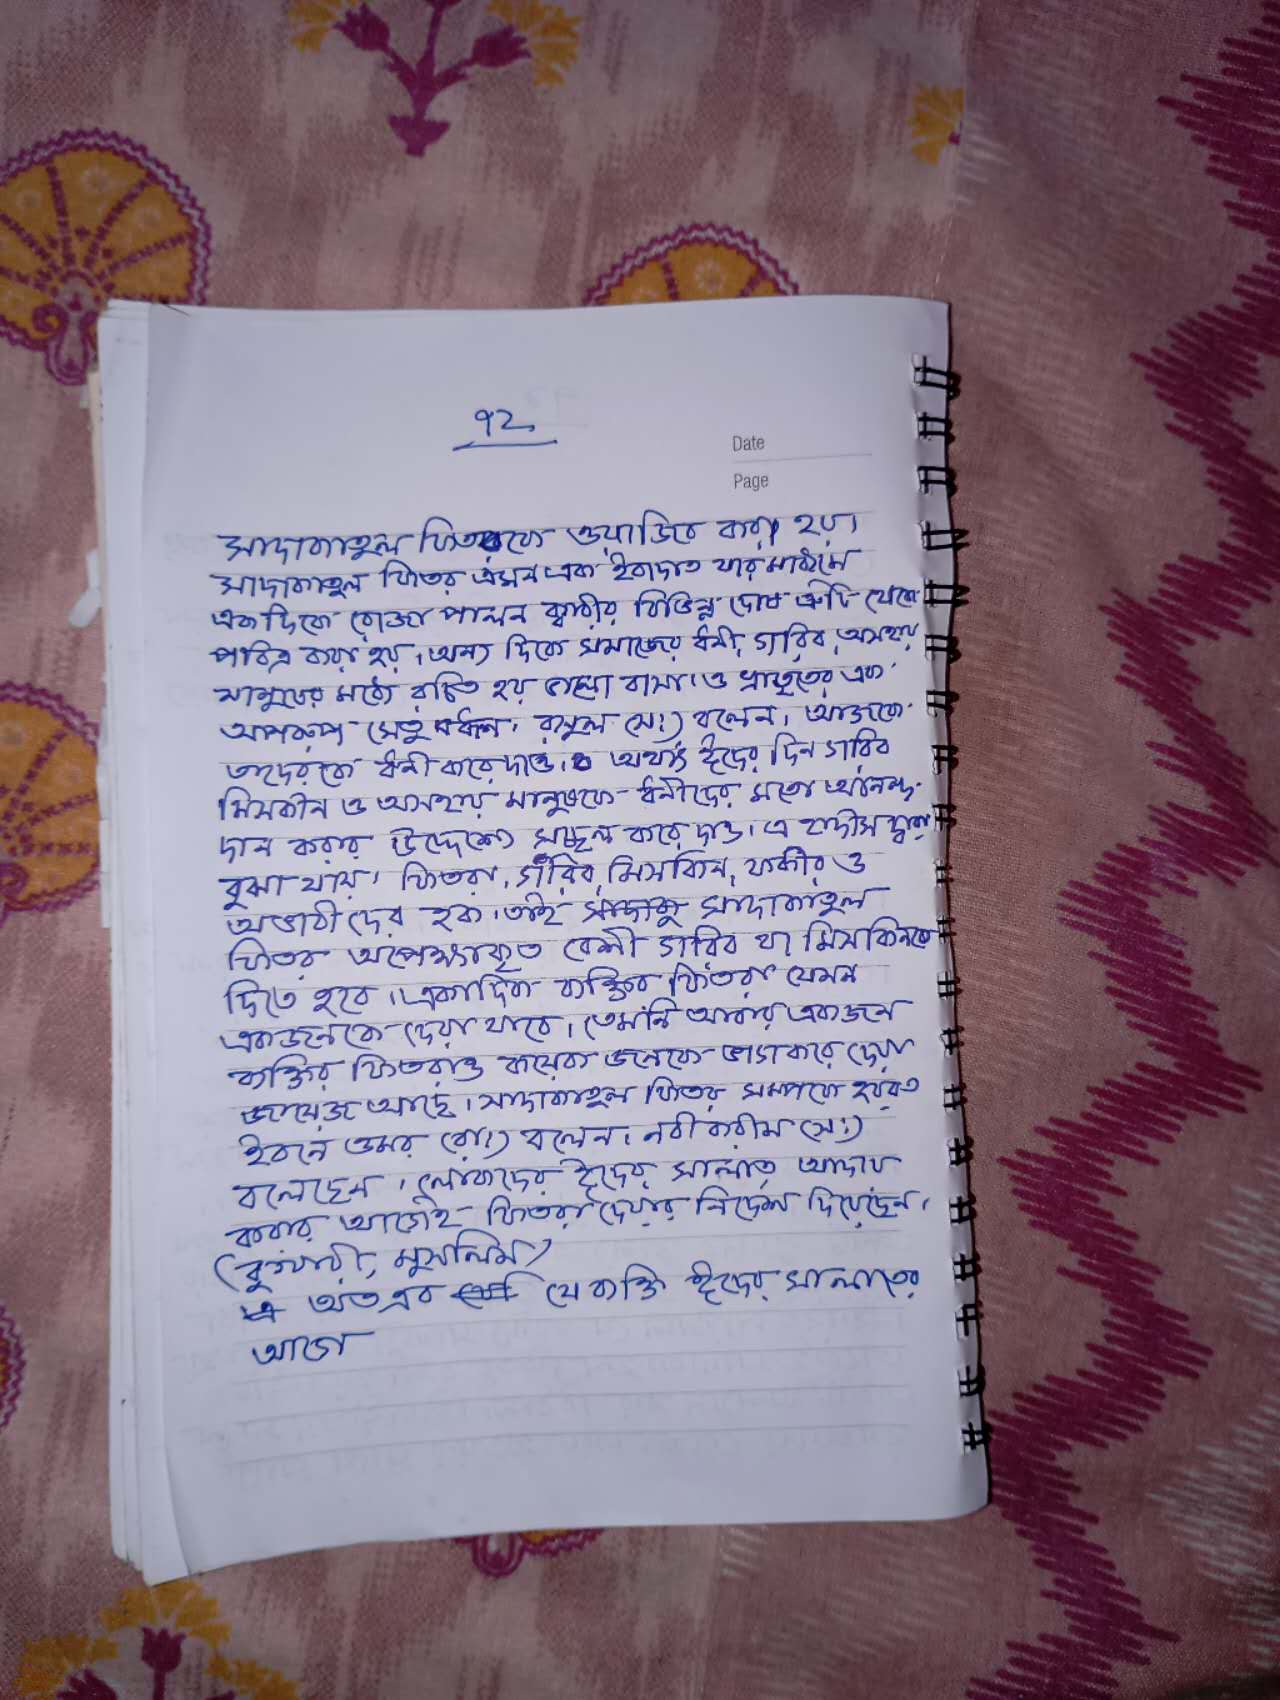 ৭২
Date
Page
সাদাকাতুল ফিতরকে ওয়াজিব করা হয়।
সাদাকাতুল ফিতর এমন এক ইবাদাত যার মাধ্যমে
একদিকে রোজা পালন কারীর বিভিন্ন দোষ ত্রুটি থেকে
পবিত্র করা হয়। অন্য দিকে সমাজের ধনী, গরিব, অসহায়
মানুষের মধ্যে রচিত হয় ভালো বাসা ও ভ্রাতৃত্বের এক
অপরূপ সেতু বন্ধন। রাসুল (স:) বলেন। আজকে
তাদেরকে ধনী করে দাও। অর্থাৎ ঈদের দিন গরিব
মিসকীন ও অসহায় মানুষকে ধনীদের মতো আনন্দ
দান করার উদ্দেশ্যে সচ্ছল করে দাও। এ হাদীস দ্বারা
বুঝা যায়। ফিতরা, গরিব, মিসকিন, ফকীর ও
অভাবী দের হক। তাই সাদাকাতুল
ফিতর অপেক্ষাকৃত বেশী গরিব যা মিসকিনকে
দিতে হবে। একাদিক ব্যক্তির ফিতরা যেমন
একজনকে দেয়া যাবে। তেমনি আবার একজন
ব্যক্তির ফিতরাও কয়েক জনকে ভাগ করে দেয়া
জায়েজ আছে। সাদাকাতুল ফিতর সম্পকে হযরত
ইবনে ওমর (রা:) বলেন। নবী কারীম (স:)
বলেছেন। লোকদের ঈদের সালাত আদায়
করার আগেই ফিতরা দেয়ার নির্দেশ দিয়েছেন।
(বুখারী, মুসলিম)
অতএব যে ব্যক্তি ঈদের সালাতের
আগে